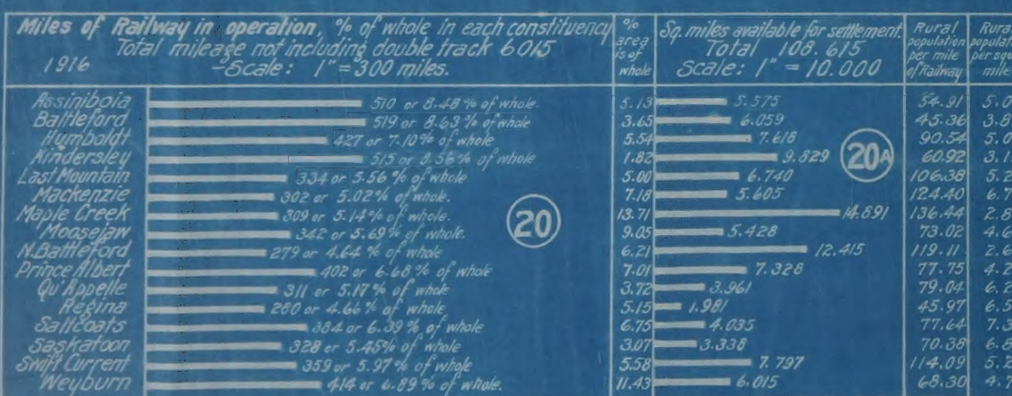 Miles of Railway in operation, % of whole in each constituency
Total mileage not including double track 6015
1916 -Scale: 1" = 300 miles.
% area is of whole
Sq. miles available for settlement.
Total 108.615
Scale: 1" = 10.000
Rural population per mile of Railway
Assiniboia 510 or 8.48% of whole. 5.13 5.575 54.91 5.0
Battleford 519 or 8.63% of whole. 3.65 6.059 45.36 3.8
Humboldt 427 or 7.10% of whole 5.54 7.618 90.54 5.0
Kindersley 515 or 8.56% of whole 1.82 9.829 60.92 3.1
Last Mountain 334 or 5.56% of whole 5.00 6.740 106.38 5.2
Mackenzie 302 or 5.02% of whole. 7.18 5.605 124.40 6.7
Maple Creek 309 or 5.14% of whole. 13.71 14.891 136.44 2.8
Moosejaw 342 or 5.69% of whole. 9.05 5.428 73.02 4.6
N.Battleford 279 or 4.64% of whole. 6.21 12.415 119.11 2.6
Prince Albert 402 or 6.68% of whole 7.01 7.328 77.75 4.2
Qu'Appelle 311 or 5.17% of whole 3.72 3.961 79.04 6.2
Regina 280 or 4.66% of whole 5.15 1.981 45.97 6.5
Saltcoats 384 or 6.39% of whole 6.75 4.035 77.64 7.3
Saskatoon 328 or 5.45% of whole 3.07 3.338 70.38 6.8
Swift Current 359 or 5.97% of whole 5.58 7.797 114.09 5.2
Weyburn 414 or 6.89% of whole. 11.43 6.015 68.30 4.7
20
20A